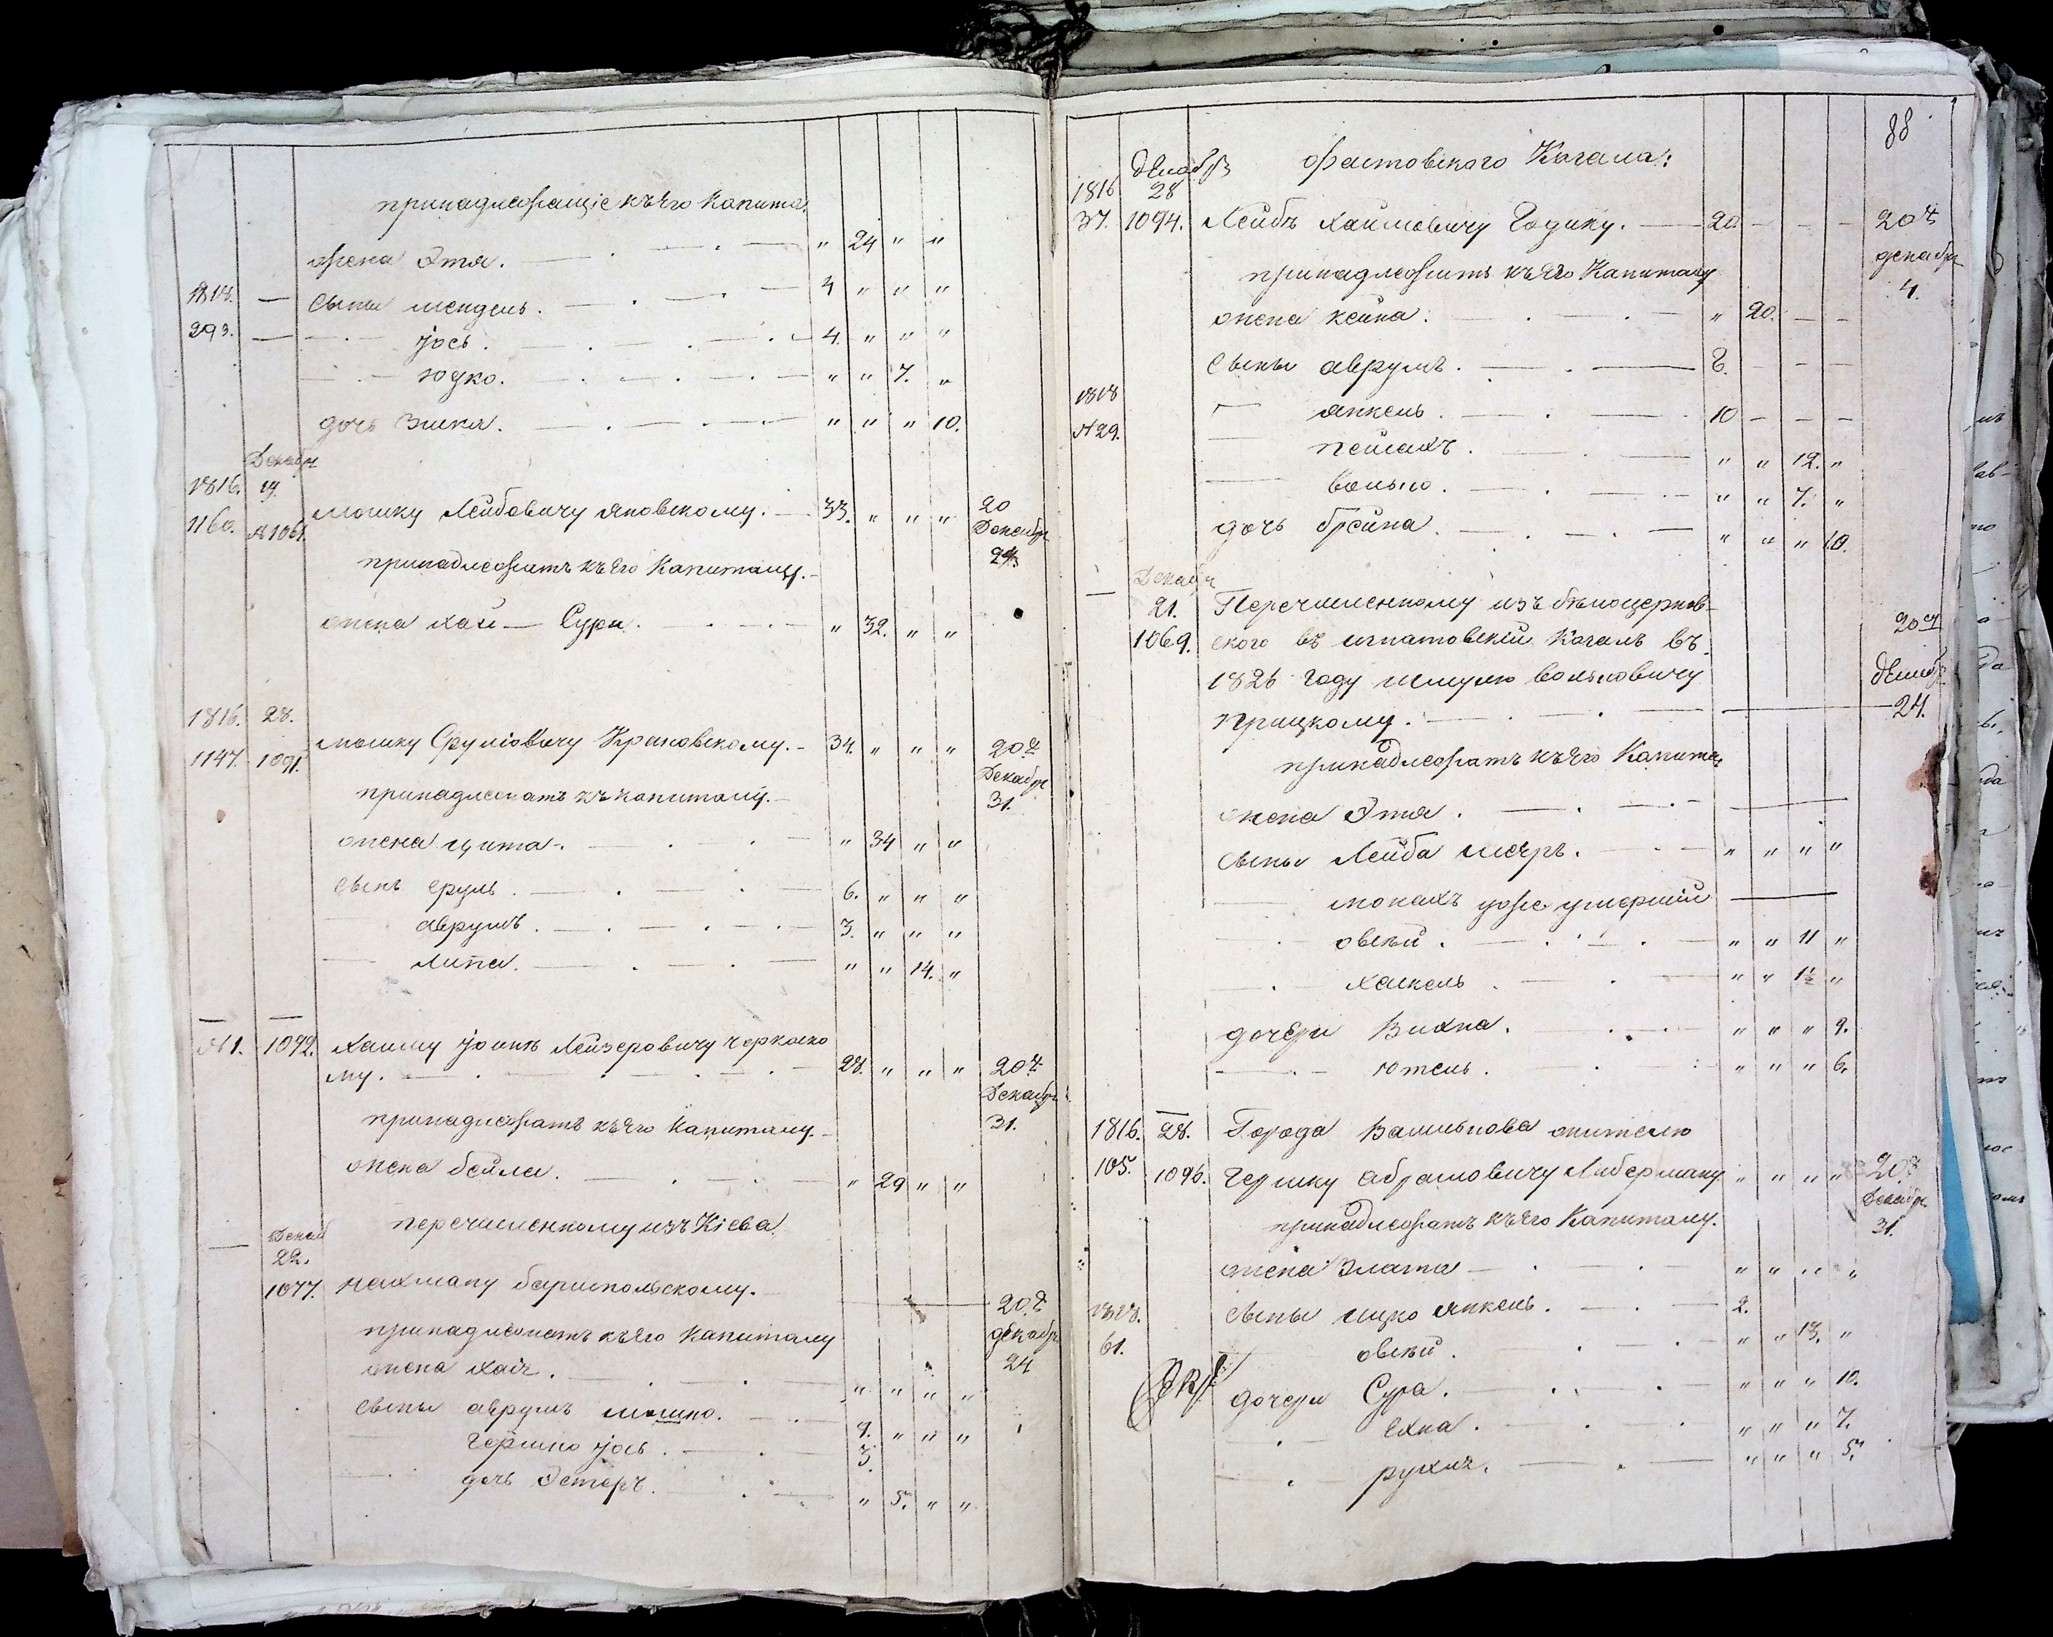 принадлежащіе къ его капита.
жена Этя. " 24 " "
1818. — сыны мендель. 4 " " "
293. — іось. 4. " " "
юдко. " " 7. "
дочь " " " 10.
Декабря
1816. 19.
1160. №1061. мошку Лейбовичу яновскому. 33. " " " 20
Декабря
принадлежатъ къ его Капиталу.
жена хая — Сура. " 32. " "
1816. 28.
1147. 1091. мошку Сруліовичу Крановскому. 34. " " " 20й
Декабря
принадлежатъ къ капиталу. 31.
жена цита. " 34 " "
сынъ сруль. 6. " " "
аврумъ. 3. " " "
липа. " " 14. "
№1. 1092. Хаиму Лейзеровичу черкаско
му. 28. " " " 20й
Декабря
принадлежатъ къ его капиталу. 31.
жена бейла. " 29 " "
Декаб перечисленному изъ Кіева
22.
1077. нахману бориспольскому. 20.й
принадлежатъ къ его капиталу декабря
жена хая. " " " " 24
сыны аврумъ мошко. 9. " " "
гершко іось. 3.
дочь Эстеръ. " 5. " "
88
Декабря фастовского Кагала:
1816 28
37. 1094. Лейбѣ Хаимовичу Годику. 20. — — — 20й
декабря
принадлежатъ къ его Капиталу 4.
жена хейна. " 20. — —
сыны аврумъ. 8. — — —
1818 янкель. 10 — — —
№29. пейсахъ. " " 12. "
волько. " " 7. "
дочь брейна. " " " 10.
Декабря
— 21. Перечисленному изъ бѣлоцерков-
1069. ского въ игнатовскій Кагалъ въ 20й
1826 году шмулю вольковичу Декабр
прицкому. 24.
принадлежатъ къ его Капита.
жена Этя.
сыны Лейба " " " "
монахъ уже умершій
овсѣй. " " 11 "
хаскель " " 1½ "
дочери Вихна. " " " 9.
ютель. " " " 6.
1816. 28. Города Василькова жителю
105. 1096. Гершку абрамовичу Либерману " " " " 20й
Декабря
принадлежатъ къ его Капиталу. 31.
жена Злата " " " "
1818. сыны ицко янкель. 2.
61. овсѣй. " " 13. "
дочери Сура. " " " 10.
Ехна. " " " 7.
рухля. " " " 5.